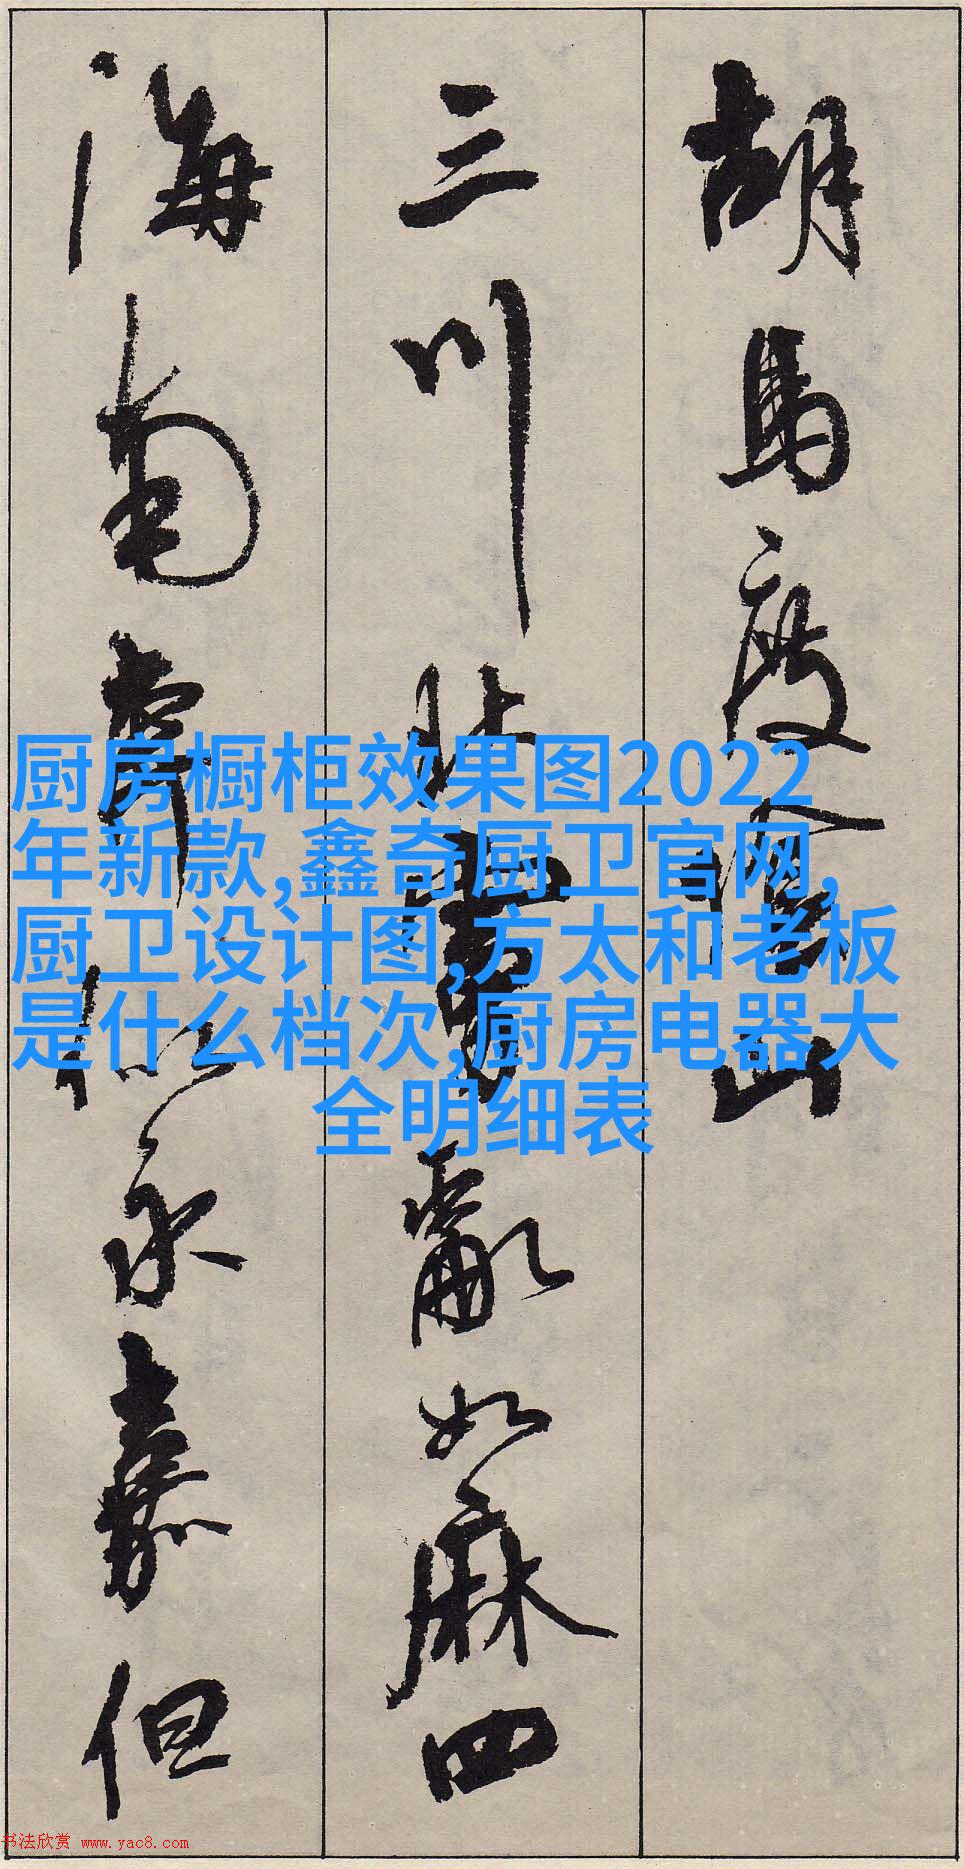 胡馬度陰山
三川北虜亂如麻四
海南奔似永嘉但
厨房橱柜效果图2022
年新款,鑫奇厨卫官网,
厨卫设计图,方太和老板
是什么档次,厨房电器大
全明细表
书法欣赏 www.yac8.com